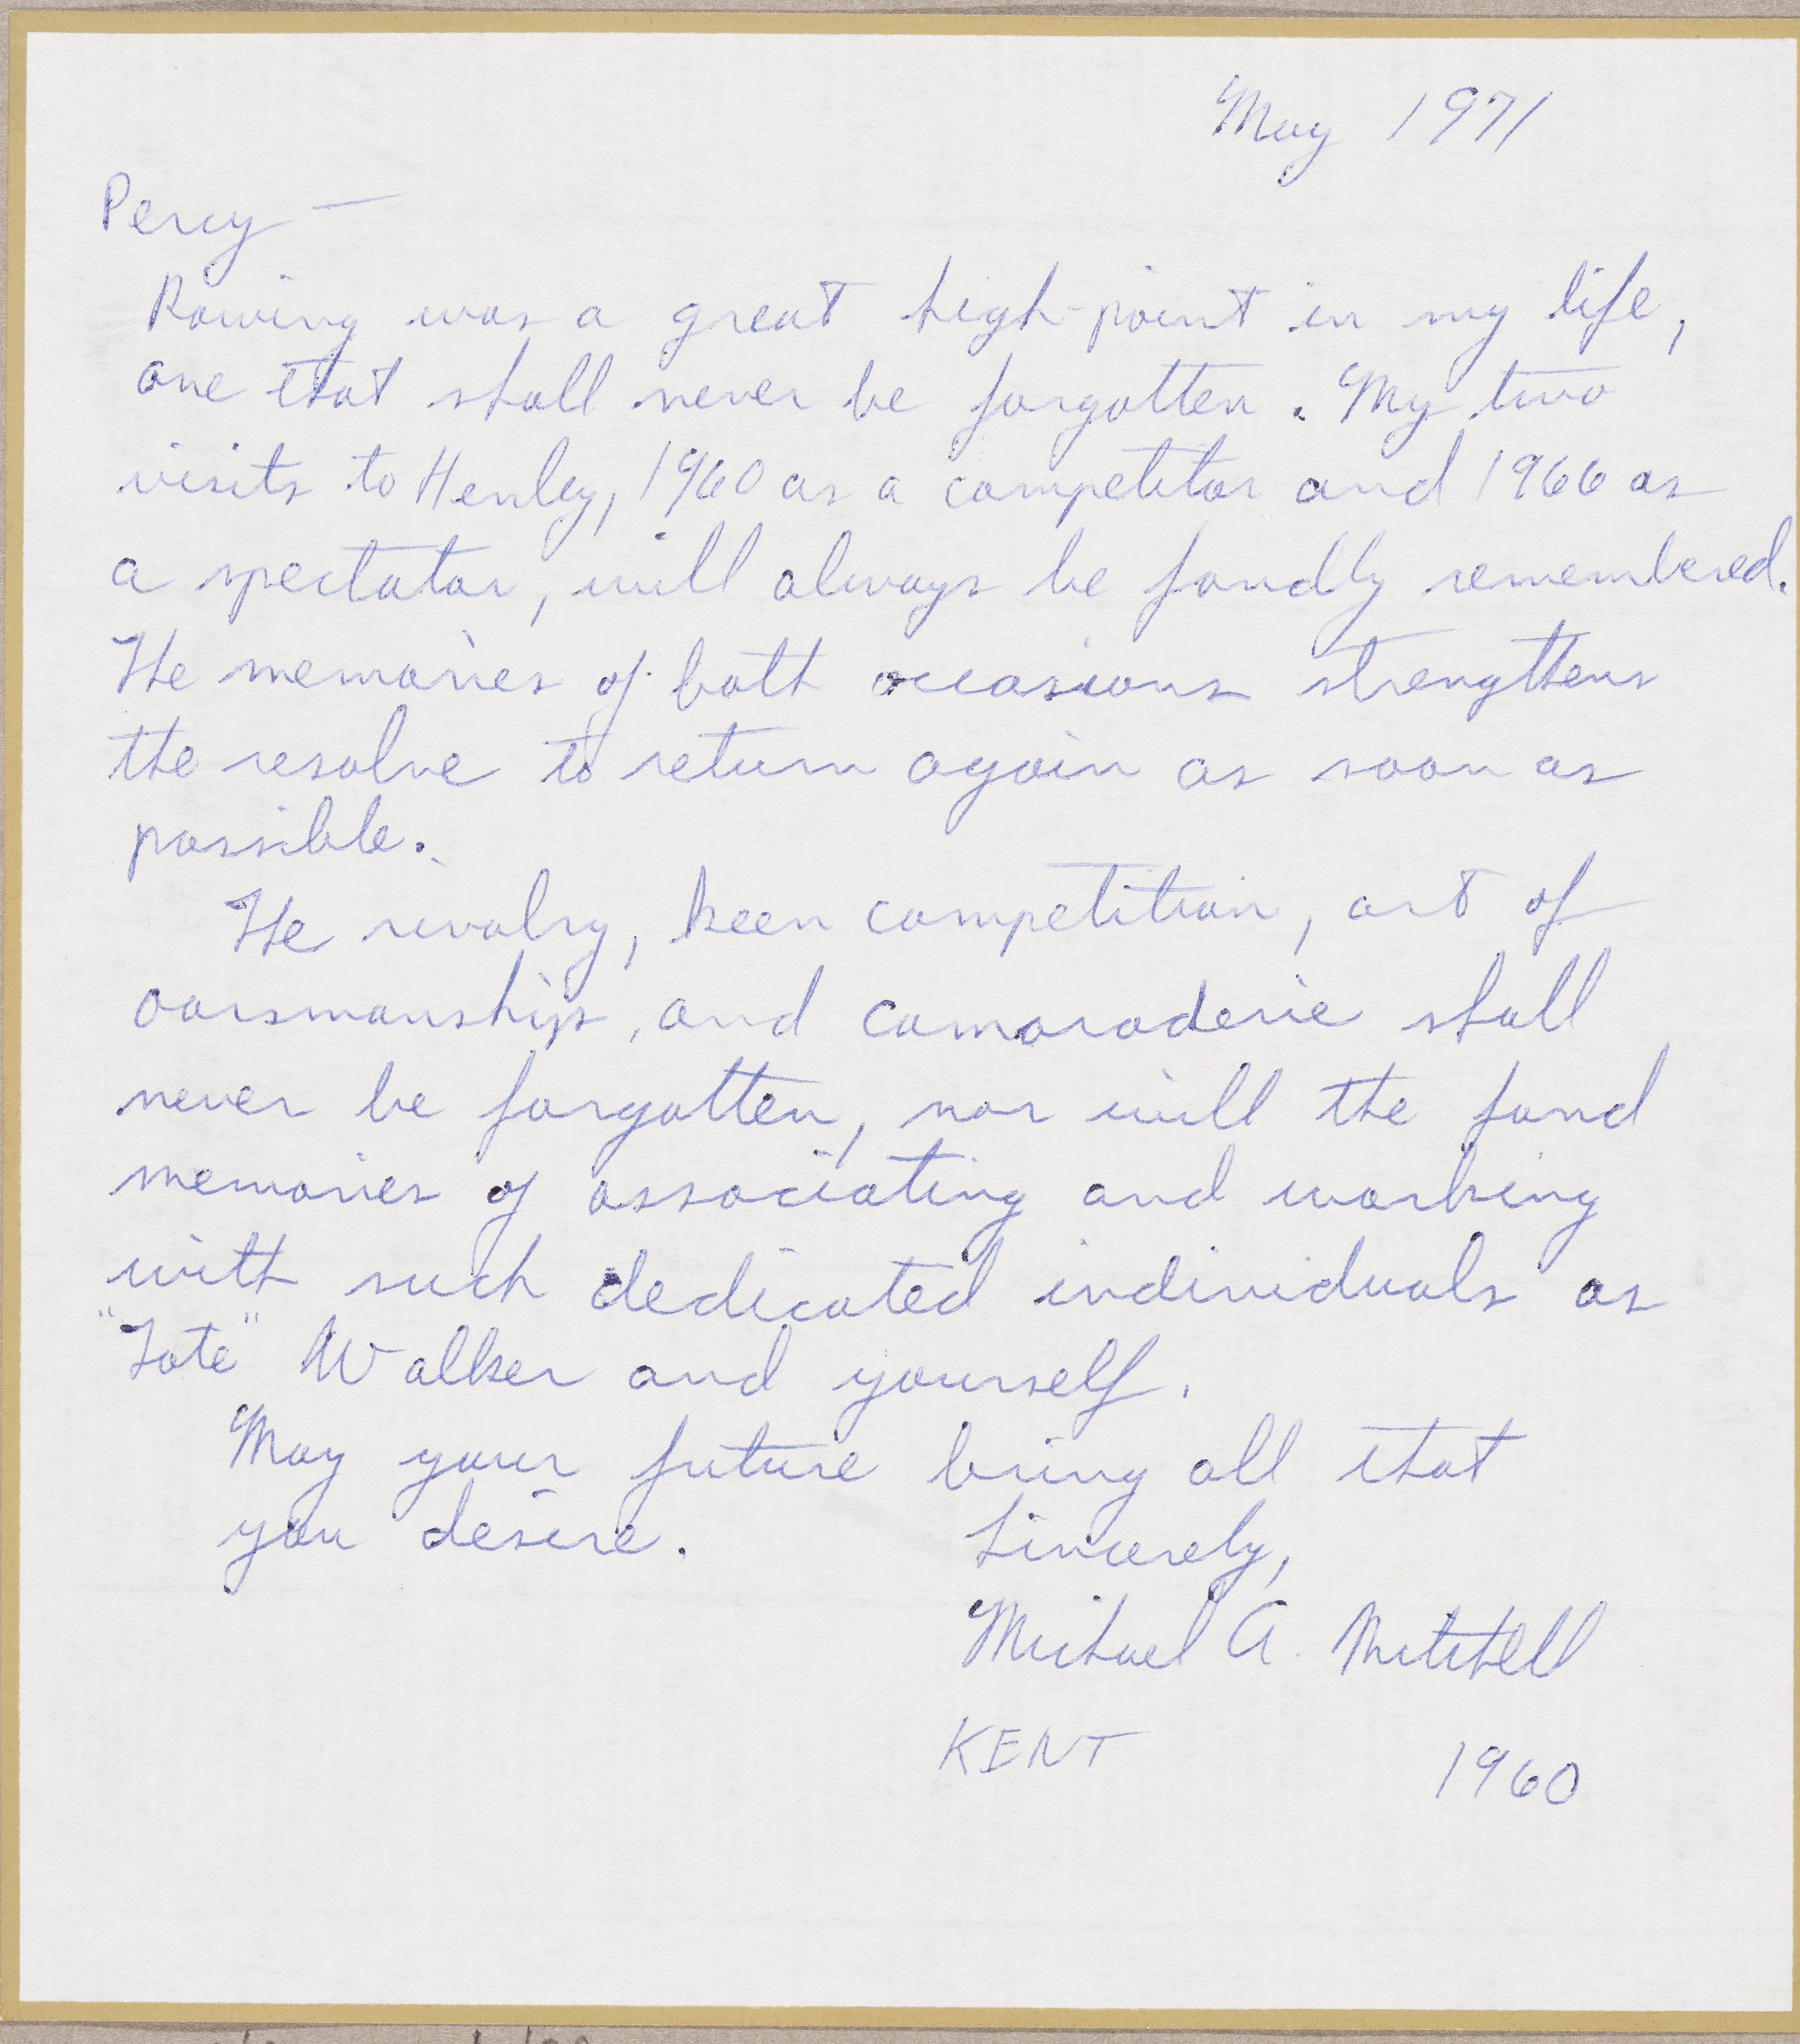 May 1971
Percy —
Rowing was a great high-point in my life,
one that shall never be forgotten. My two
visits to Henley, 1960 as a competitor and 1966 as
a spectator, will always be fondly remembered.
The memories of both occasions strengthens
the resolve to return again as soon as
possible.
The rivalry, keen competition, art of
oarsmanship, and camaraderie shall
never be forgotten, nor will the fond
memories of associating and working
with such dedicated individuals as
"Tote" Walker and yourself.
May your future bring all that
you desire.
Sincerely,
Michael A. Mitchell
KENT 1960